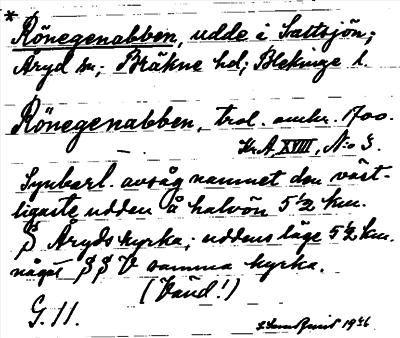 * Rönegenabben, udde i Saltsjön;
Åryd sn; Bräkne hd; Blekinge l.
Rönegenabben, trol. omkr. 1700.
Kr. A, XVIII, No 3.
Synbarl. avsåg namnet den väst-
ligaste udden å halvön 5 1/2 km.
S Åryds kyrka; uddens läge 5 1/2 km.
något S S V samma kyrka.
(Vänd!)
G. 11.
1946